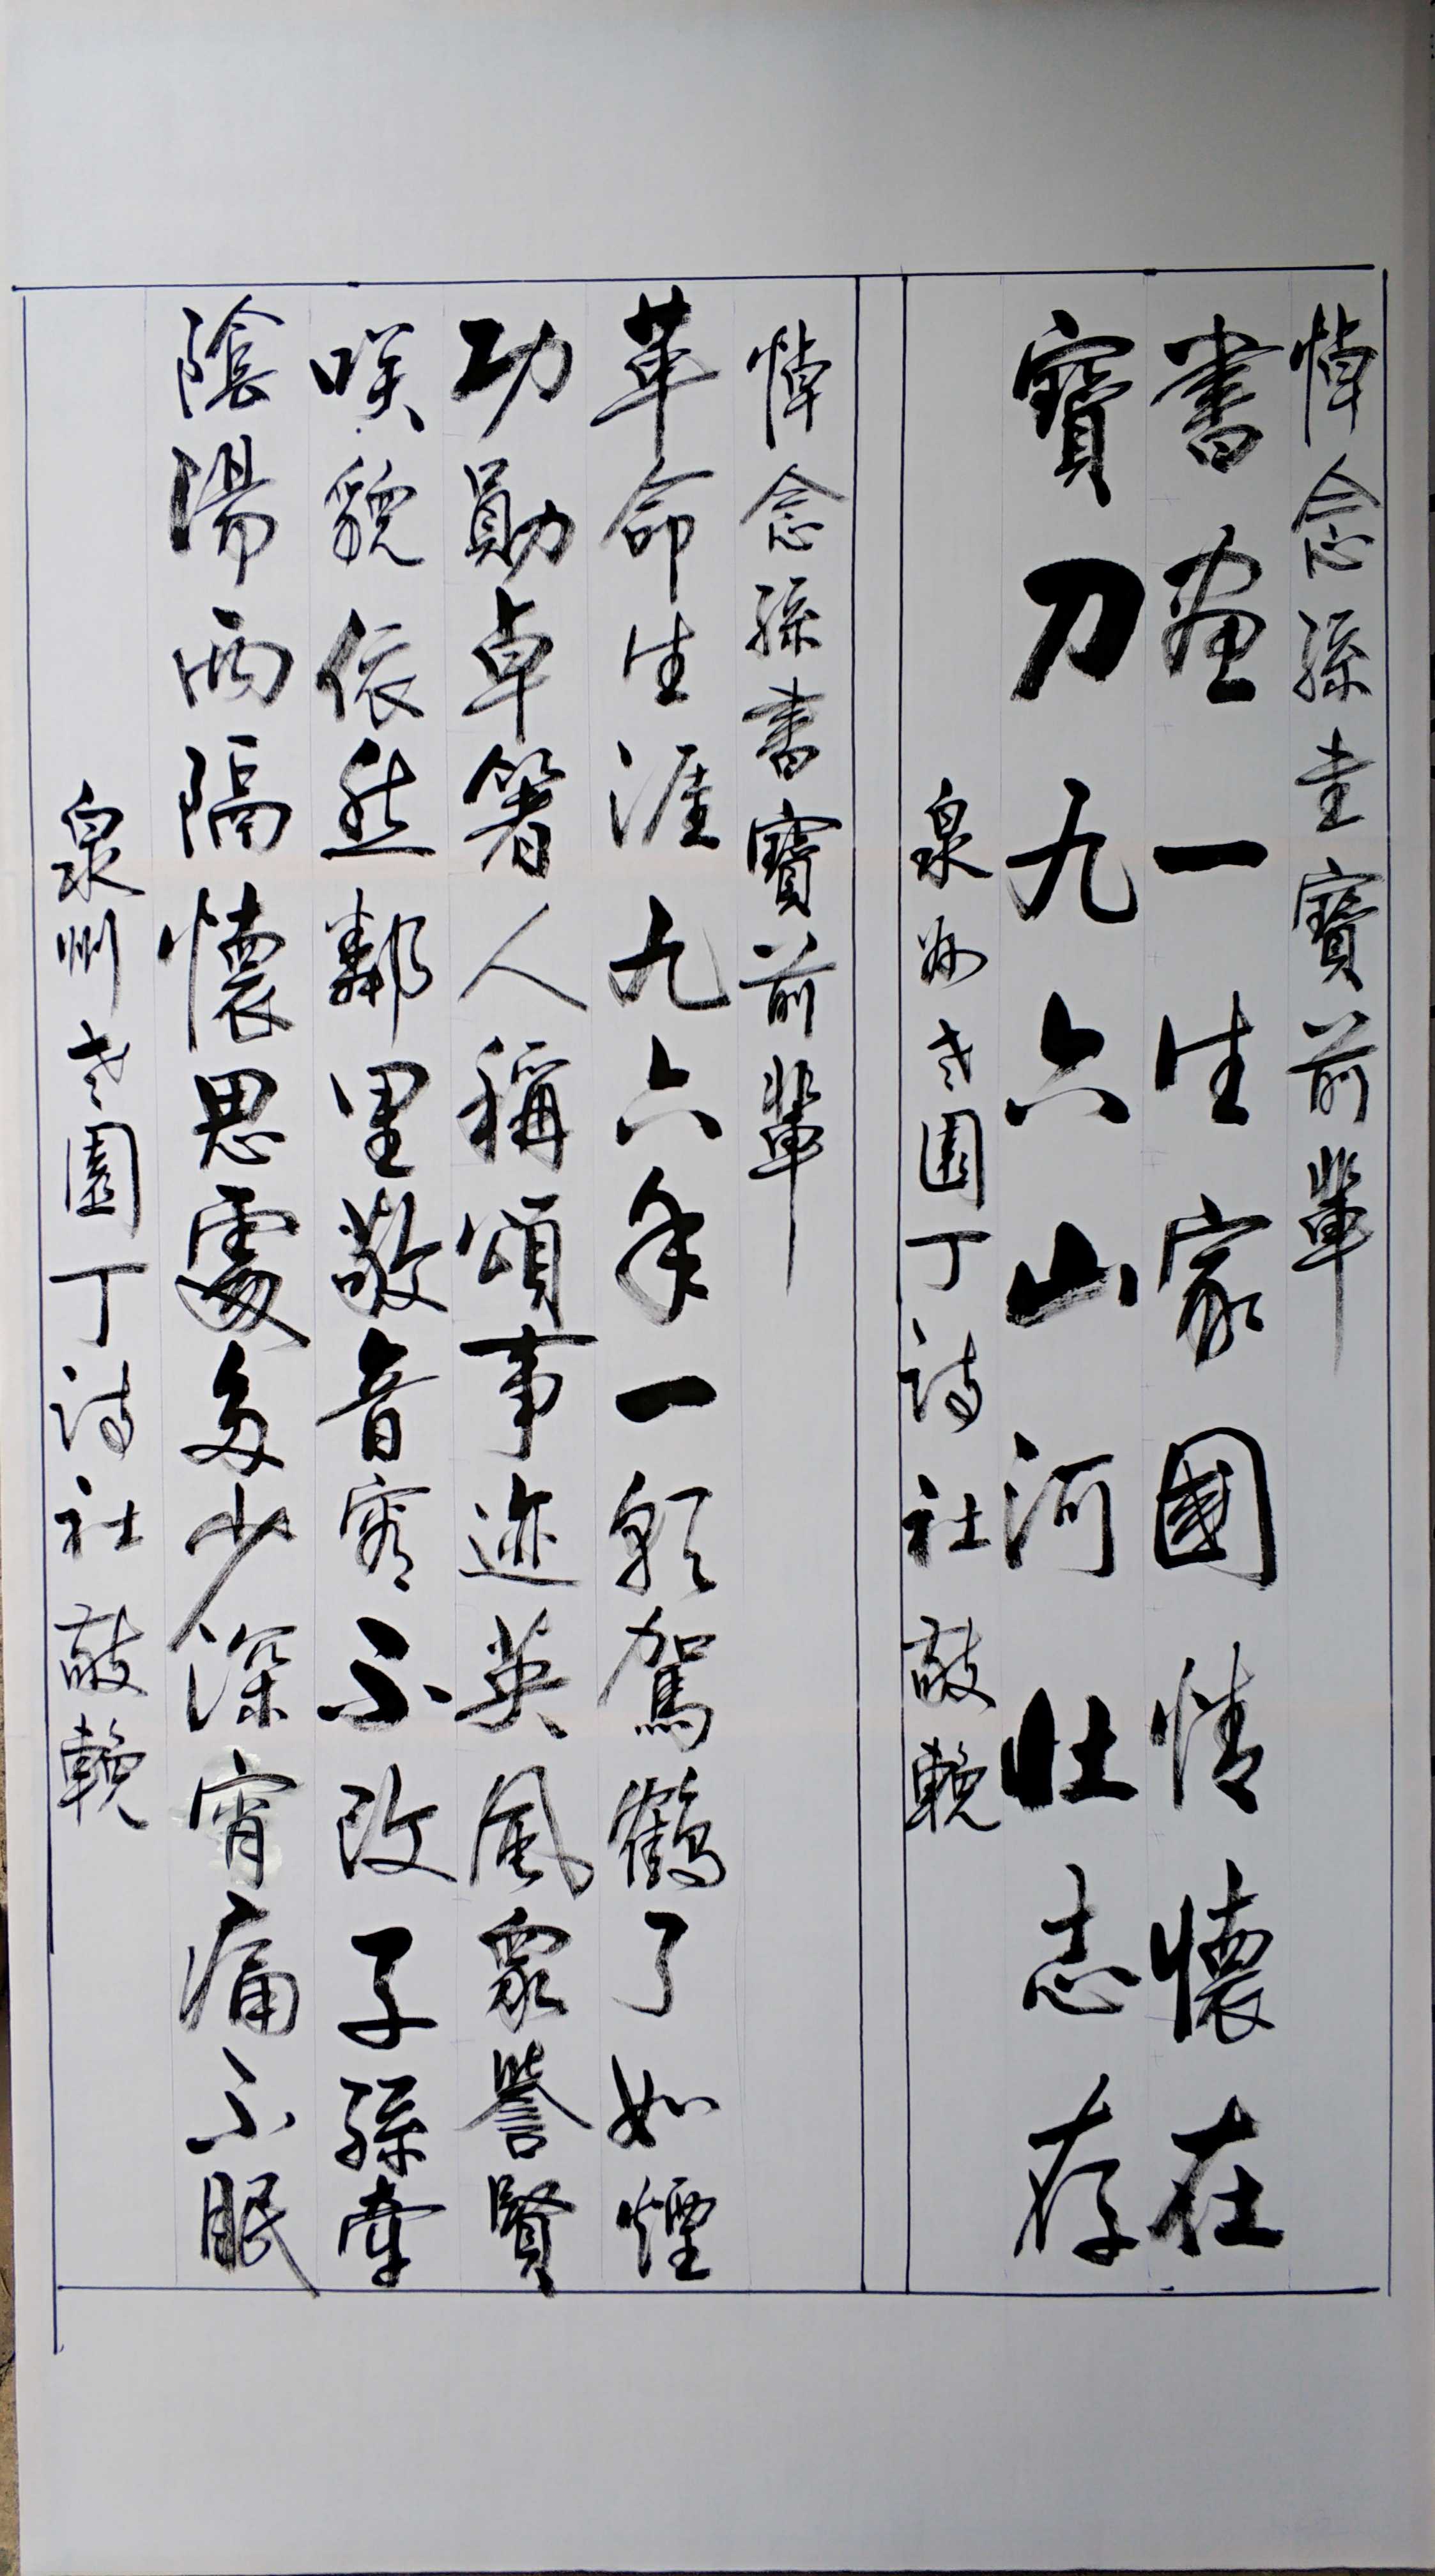 悼念孫書寶前輩
書畫一生家國情懷在
寶刀九六山河壯志存
泉州老園丁詩社敬輓
悼念孫書寶前輩
革命生涯九六年一朝駕鶴了如煙
功勛卓箸人稱頌事迹英風眾譽賢
咲貌依然鄰里敬音容不改子孫牽
陰陽兩隔懷思處多少深宵痛不眠
泉州老園丁詩社敬輓